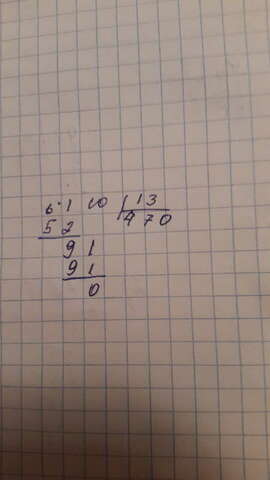 6110 13
52 470
91
91
0